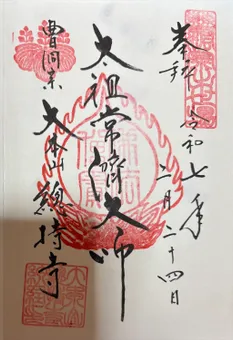 奉拝 令和七年
二月二十四日
太祖常済大師
曹洞宗
大本山 總持寺